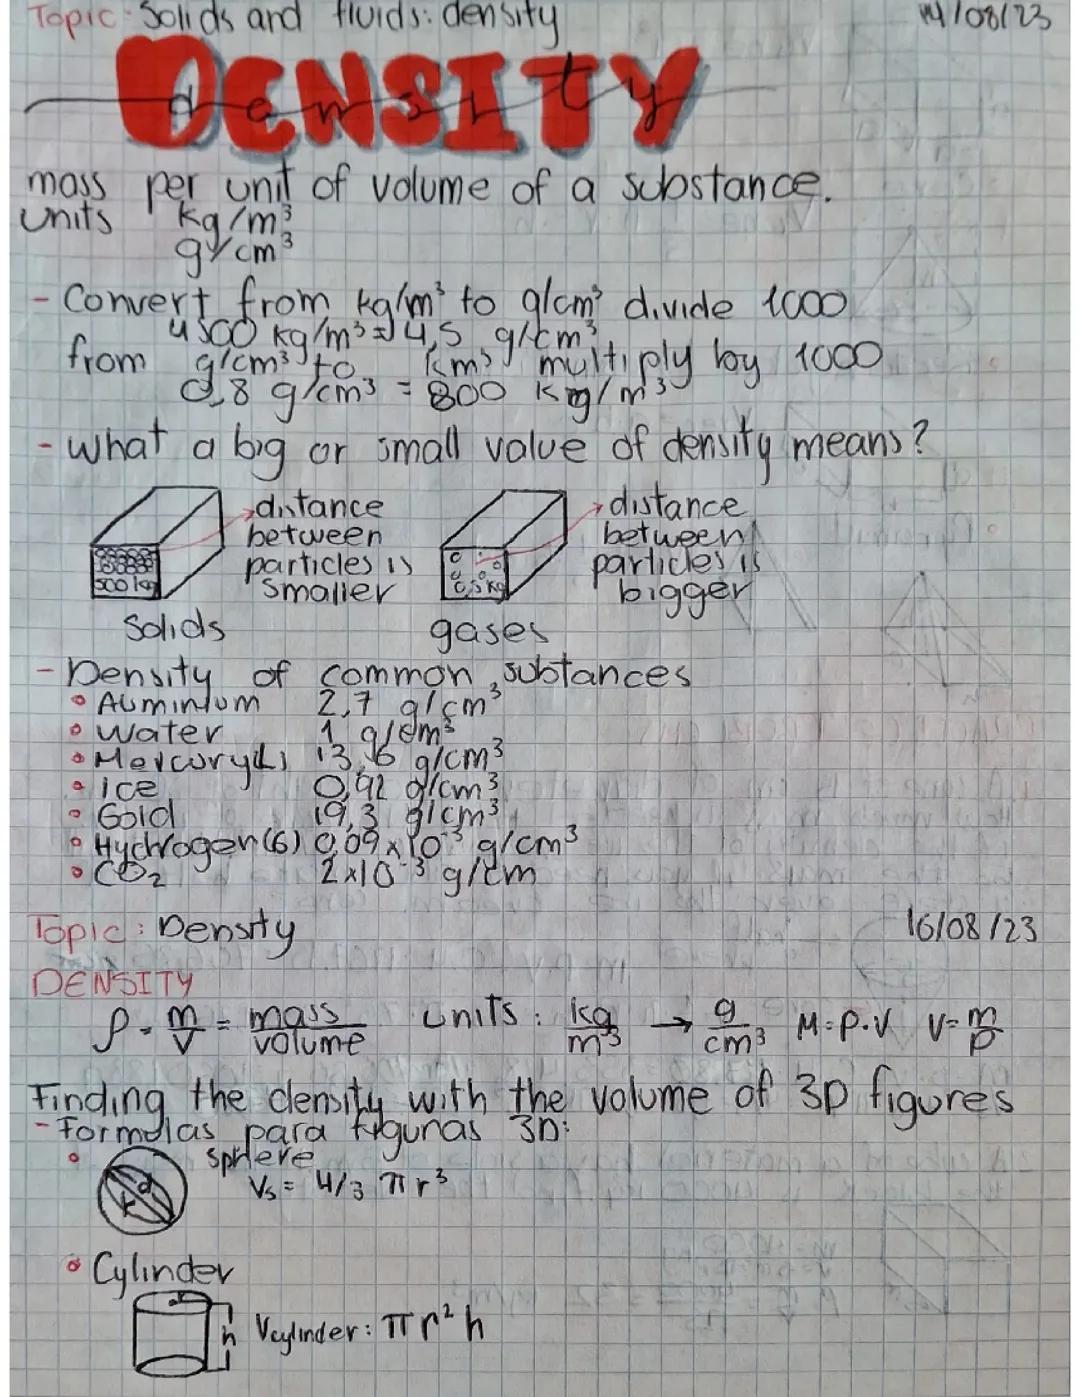 Topic: Solids and fluids: density 14/08/23
DENSITY
density
mass per unit of volume of a substance.
units kg/m³
g/cm³
- Convert from kg/m³ to g/cm³ divide 1000
4500 kg/m³ = 4,5 g/cm³
from g/cm³ to km³ multiply by 1000
0,8 g/cm³ = 800 kg/m³
- What a big or small value of density means?
distance
between
particles is
smaller
500 kg
Solids
distance
between
particles is
bigger
0,5 kg
gases
- Density of common substances
• Aluminium 2,7 g/cm³
• Water 1 g/cm³
• Mercury(L) 13,6 g/cm³
• ice 0,92 g/cm³
• Gold 19,3 g/cm³
• Hydrogen(G) 0,09x10⁻³ g/cm³
• CO₂ 2x10⁻³ g/cm
Topic: Density 16/08/23
DENSITY
ρ = m/v = mass/volume units: kg/m³ → g/cm³ M=ρ.V V=m/ρ
Finding the density with the volume of 3D figures
- Formulas para figuras 3D:
• sphere
d
r
Vs = 4/3 π r³
• Cylinder
r
h
Vcylinder: π r² h